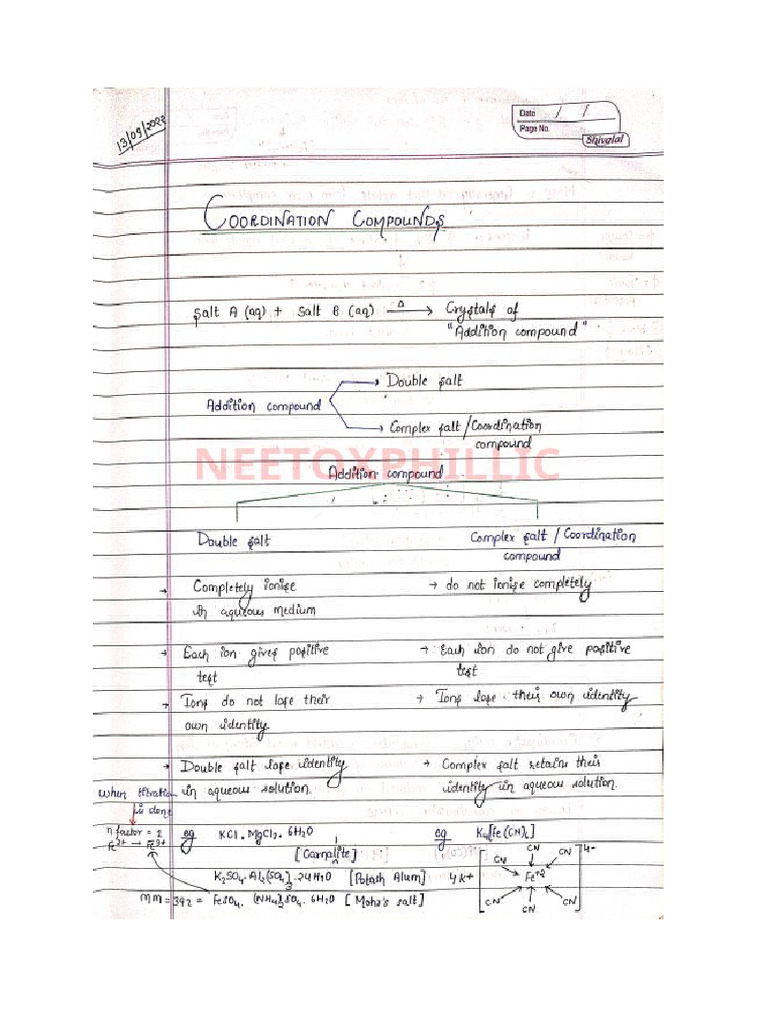 13/09/2022
Date / /
Page No.
Shivalal
COORDINATION COMPOUNDS
Salt A (aq) + Salt B (aq) —Δ→ Crystals of
"Addition compound"
Addition compound → Double salt
→ Complex salt / Coordination
compound
NEETOXPHILLIC
Addition compound
Double salt Complex salt / Coordination
compound
→ Completely ionise → do not ionise completely
in aqueous medium
→ Each ion gives positive → Each ion do not give positive
test test
→ Ions do not lose their → Ions lose their own identity
own identity
→ Double salt lose identity → Complex salt retains their
in aqueous solution. identity in aqueous solution.
when titration
is done
n factor = 1
Fe²⁺ → Fe³⁺
eg KCl. MgCl₂. 6H₂O eg K₄[Fe(CN)₆]
[Carnalite]
K₂SO₄. Al₂(SO₄)₃. 24H₂O [Potash Alum]
MM = 392 = FeSO₄. (NH₄)₂SO₄. 6H₂O [Mohr's salt]
4K+ [ Fe+2 CN CN CN CN CN CN ]4-